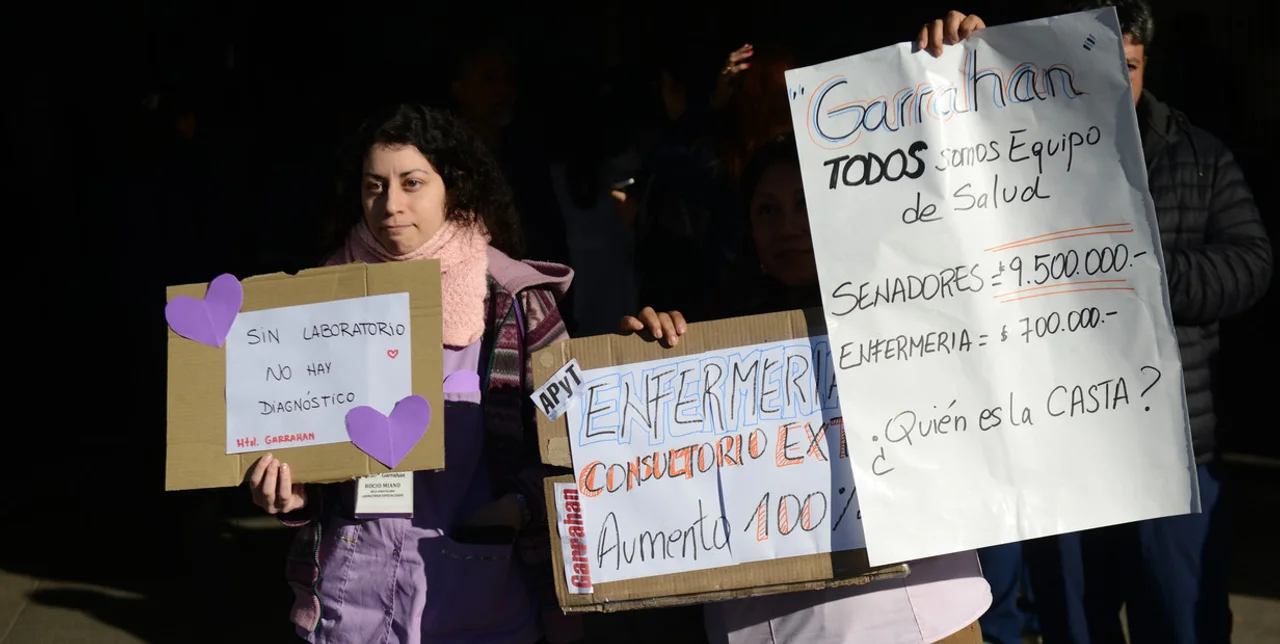 SIN LABORATORIO
NO HAY
DIAGNÓSTICO
Htal. GARRAHAN
Garrahan
ROCIO MIANO
APyT
ENFERMERIA
CONSULTORIO EXT
Garrahan
Aumento 100%
"Garrahan"
TODOS somos Equipo
de Salud
SENADORES = $9.500.000.-
ENFERMERIA = $ 700.000.-
¿Quién es la CASTA?